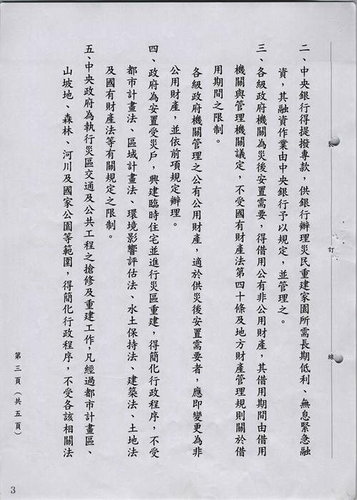 二、中央銀行得提撥專款，供銀行辦理災民重建家園所需長期低利、無息緊急融
資，其融資作業由中央銀行予以規定，並管理之。
三、各級政府機關為災後安置需要，得借用公有非公用財產，其借用期間由借用
機關與管理機關議定，不受國有財產法第四十條及地方財產管理規則關於借
用期間之限制。
各級政府機關管理之公有公用財產，適於供災後安置需要者，應即變更為非
公用財產，並依前項規定辦理。
四、政府為安置受災戶，興建臨時住宅並進行災區重建，得簡化行政程序，不受
都市計畫法、區域計畫法、環境影響評估法、水土保持法、建築法、土地法
及國有財產法等有關規定之限制。
五、中央政府為執行災區交通及公共工程之搶修及重建工作，凡經過都市計畫區、
山坡地、森林、河川及國家公園等範圍，得簡化行政程序，不受各該相關法
第三頁（共五頁）
裝
訂
線
3